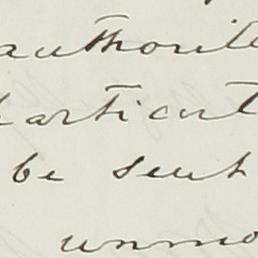 authorite
particut
be sent
unmo